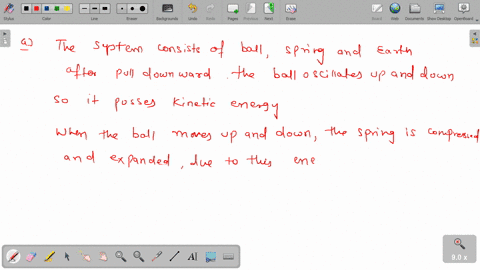 Stylus Color Line Style Backgrounds Undo Redo Pages Previous Next Erase Boards Web Documents Show Desktop OpenBoard
a) The system consists of ball, spring and Earth
after pull downward. the ball oscillates up and down
so it posses kinetic energy
When the ball moves up and down, the spring is compressed
and expanded, due to this ene
8.0 x